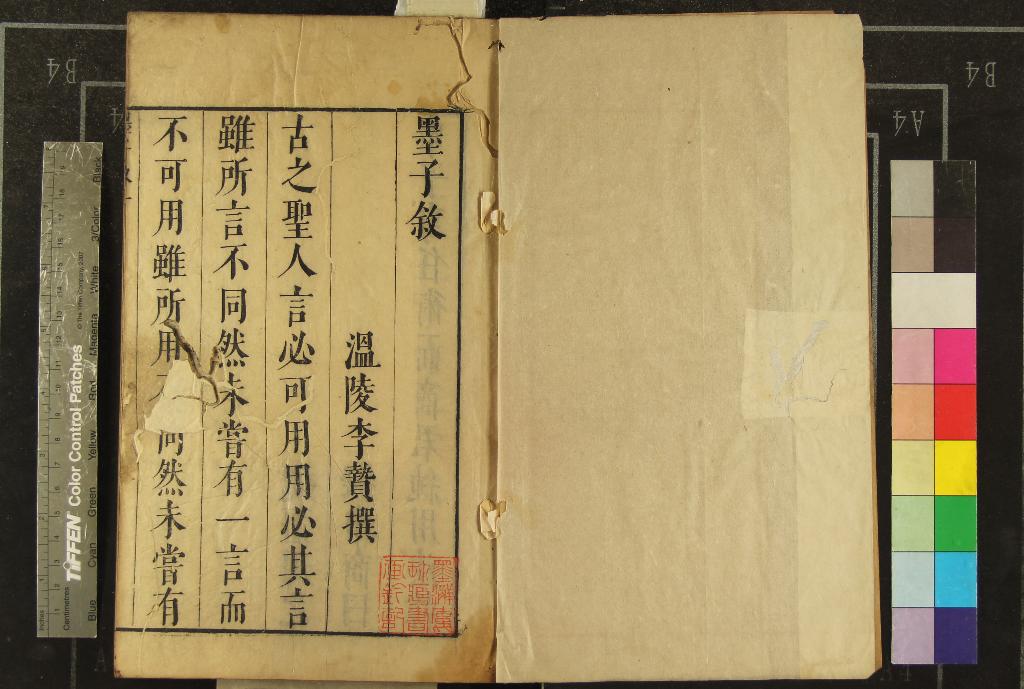 墨子敘
溫陵李贄撰
古之聖人言必可用用必其言
雖所言不同然未嘗有一言而
不可用雖所用不同然未嘗有
B4
B4
A4
TIFFEN Color Control Patches
© The Tiffen Company, 2007
Inches
Centimetres
Blue
Cyan
Green
Yellow
Red
Magenta
White
3/Color
Black